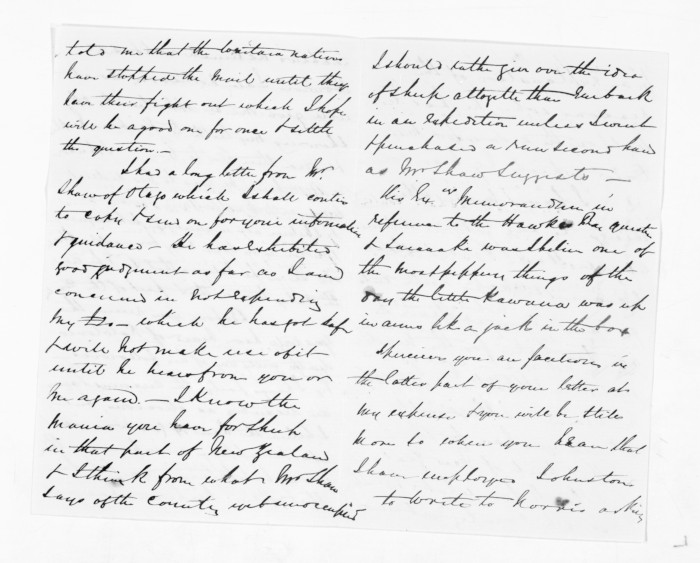 told me that the Waitara natives
have stopped the mail until they
have their fight out which I hope
will be a good one for once & settle
the question —
I had a long letter from Mr
Shaw of Otago which I shall
to copy & send on for your information
& guidance — He has exhibited
good judgment as far as I am
concerned in not expending
my — which he has got safe
& will not make use of it
until he hears from you or
me again — I know the
mania you have for sheep
in that part of New Zealand
& I think from what Mr Shaw
says of the country unoccupied
I should rather give over the idea
of sheep altogether than embark
in an expedition unless I went
& purchased a run second hand
as Mr Shaw suggests —
His Ex. Memorandum in
reference to the Hawkes Bay question
& Taranaki was one of
the most peppery things of the
day the little Kawana was up
in arms like a jack in the box
I perceive you are facetious in
the latter part of your letter at
my expense & you will be still
more so when you hear that
I have employed Johnston
to write to Norris asking